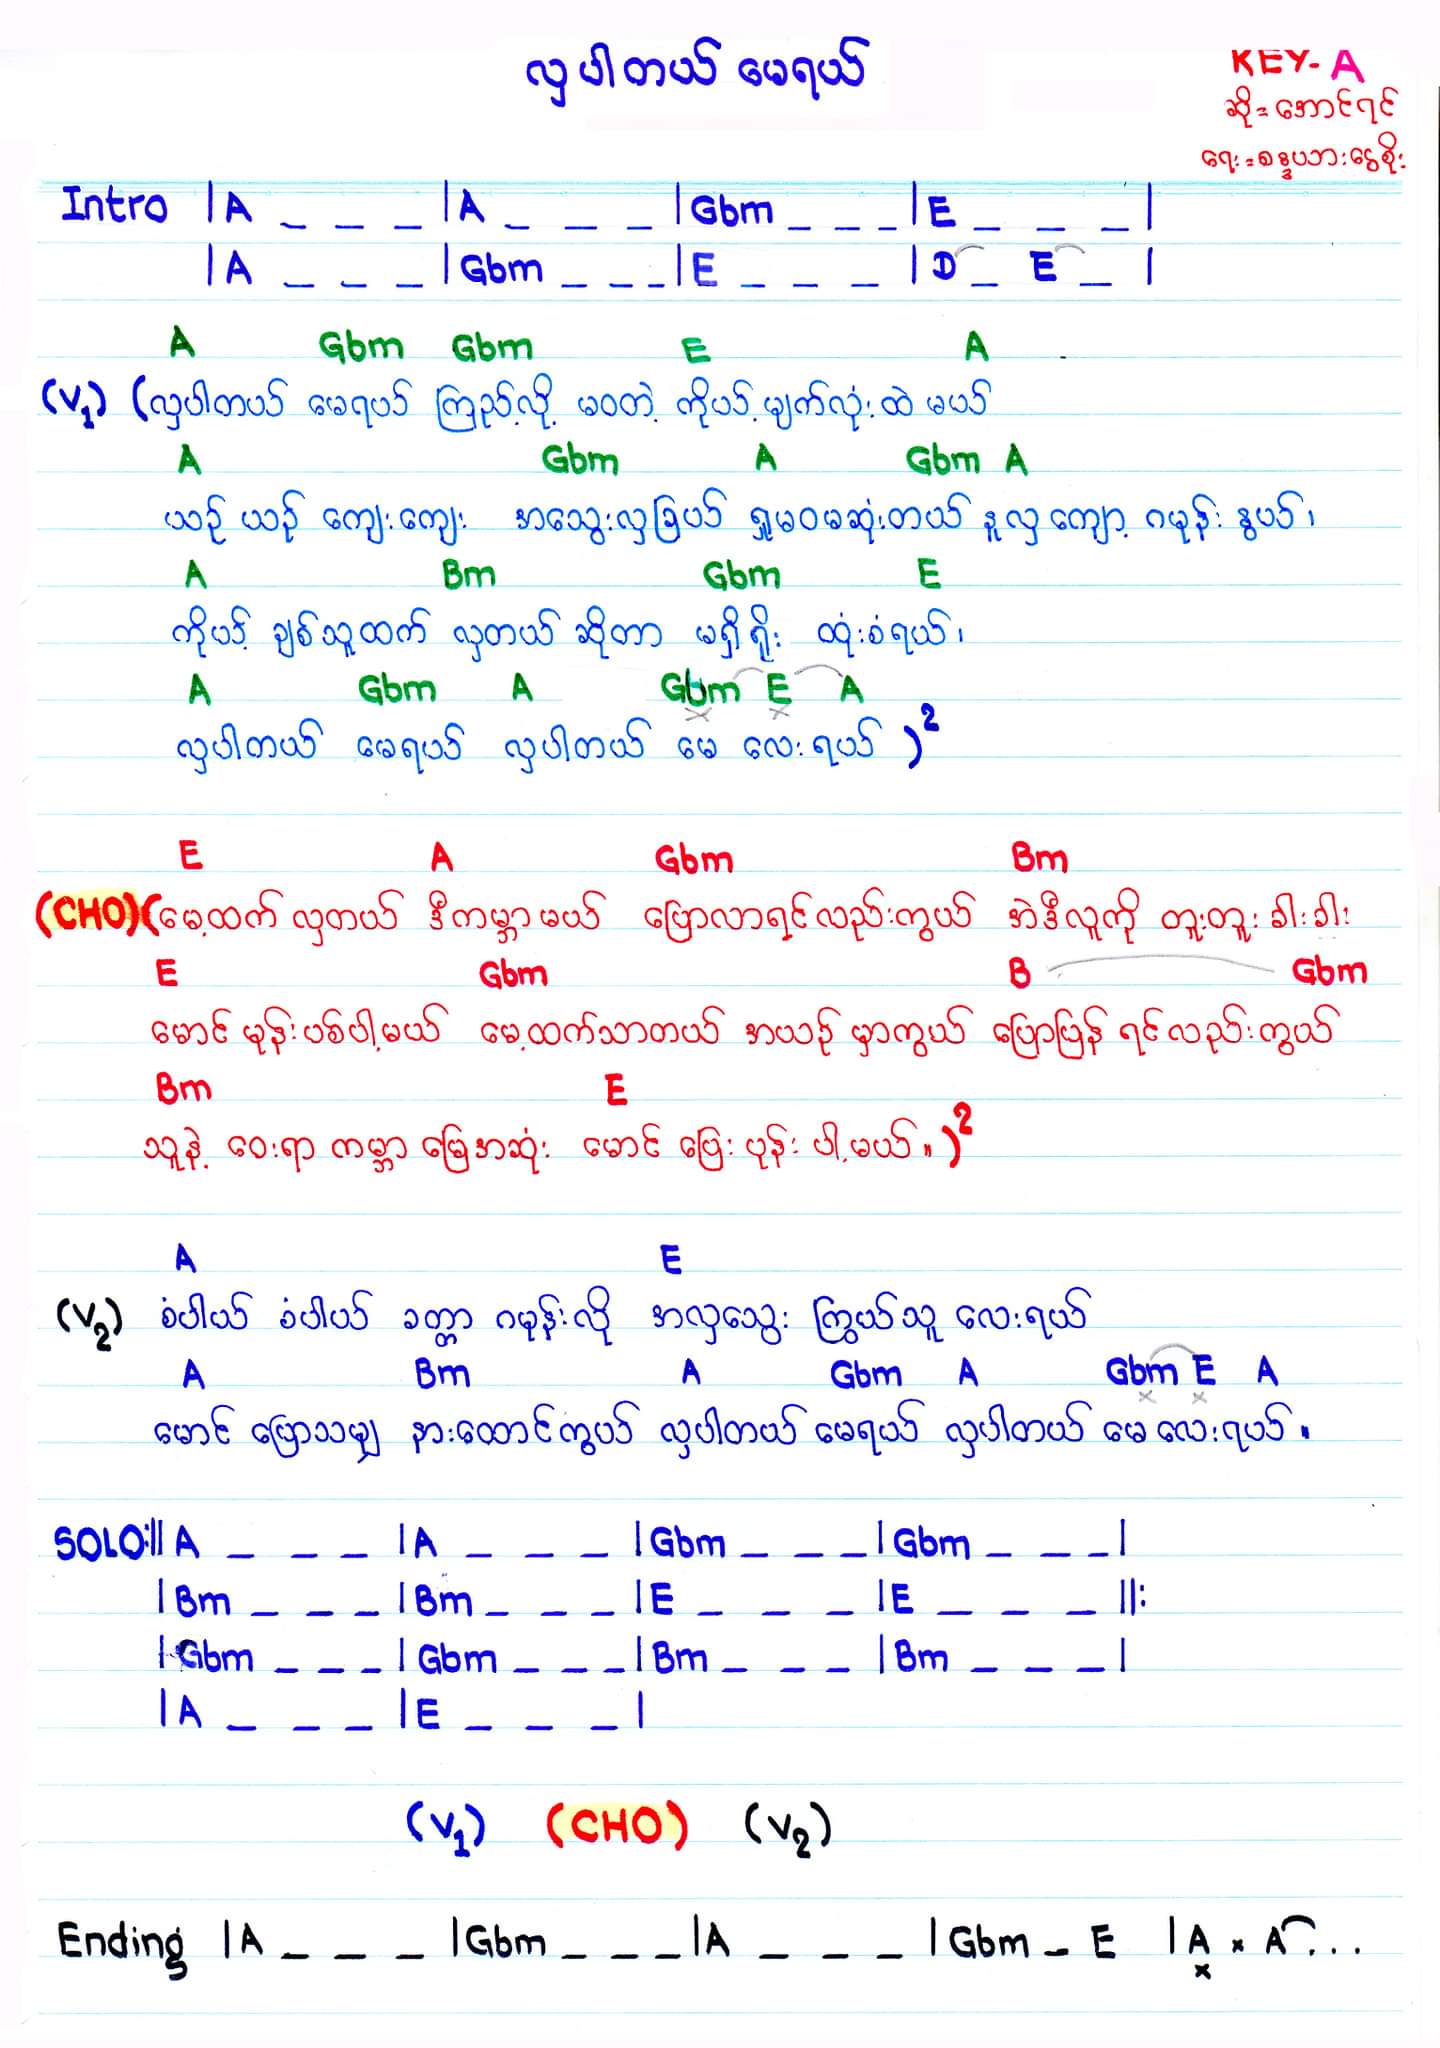 လှပါတယ် မေရယ်
KEY- A
ဆို = အောင်ရင်
ရေး = စန္ဒယားငွေစိုး
Intro |A _ _ _ |A _ _ _ |Gbm _ _ _ |E _ _ _ |
|A _ _ _ |Gbm _ _ _ |E _ _ _ |D _ E _ |
A Gbm Gbm E A
(V1) (လှပါတယ် မေရယ် ကြည့်လို့ မဝတဲ့ ကိုယ့် မျက်လုံးထဲ မယ်
A Gbm A Gbm A
ယဉ် ယဉ် ကျေးကျေး အသွေးလှခြယ် ရှုမဝမဆုံးတယ် နုလှ ကျော့ ဂမုန်း နွယ်၊
A Bm Gbm E
ကိုယ့် ချစ်သူထက် လှတယ် ဆိုတာ မရှိရိုး ထုံးစံရယ်၊
A Gbm A Gbm E A
လှပါတယ် မေရယ် လှပါတယ် မေ လေးရယ် )2
E A Gbm Bm
(CHO) (မေ့ထက် လှတယ် ဒီကမ္ဘာမယ် ပြောလာရင်လည်းကွယ် အဲဒီလူကို တူးတူး ခါးခါး
E Gbm B Gbm
မောင် မုန်းပစ်ပါ့မယ် မေ့ထက်သာတယ် အယဉ် မှာကွယ် ပြောပြန် ရင်လည်းကွယ်
Bm E
သူနဲ့ ဝေးရာ ကမ္ဘာ မြေအဆုံး မောင် ပြေး ပုန်း ပါ့မယ်။ )2
A E
(V2) စံပါယ် စံပါယ် ခတ္တာ ဂမုန်းလို အလှသွေး ကြွယ်သူ လေးရယ်
A Bm A Gbm A Gbm E A
မောင် ပြောသမျှ နားထောင်ကွယ် လှပါတယ် မေရယ် လှပါတယ် မေ လေးရယ်။
SOLO:|| A _ _ _ |A _ _ _ |Gbm _ _ _ |Gbm _ _ _ |
|Bm _ _ _ |Bm _ _ _ |E _ _ _ |E _ _ _ ||:
|Gbm _ _ _ |Gbm _ _ _ |Bm _ _ _ |Bm _ _ _ |
|A _ _ _ |E _ _ _ |
(V1) (CHO) (V2)
Ending |A _ _ _ |Gbm _ _ _ |A _ _ _ |Gbm _ E |A x A ...